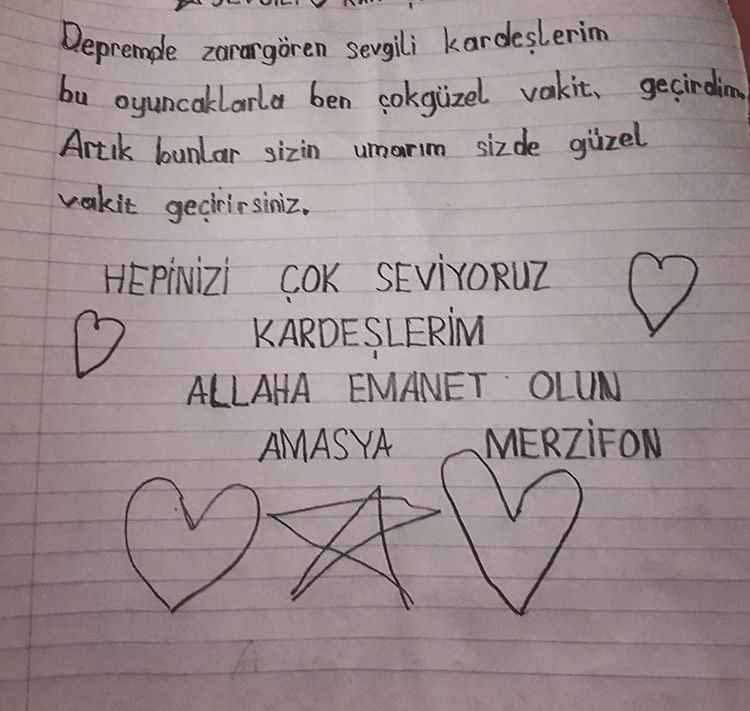 Depremde zarargören sevgili kardeşlerim
bu oyuncaklarla ben çokgüzel vakit, geçirdim.
Artık bunlar sizin umarım sizde güzel
vakit geçirirsiniz.
HEPİNİZİ ÇOK SEVİYORUZ
KARDEŞLERİM
ALLAHA EMANET OLUN
AMASYA MERZİFON